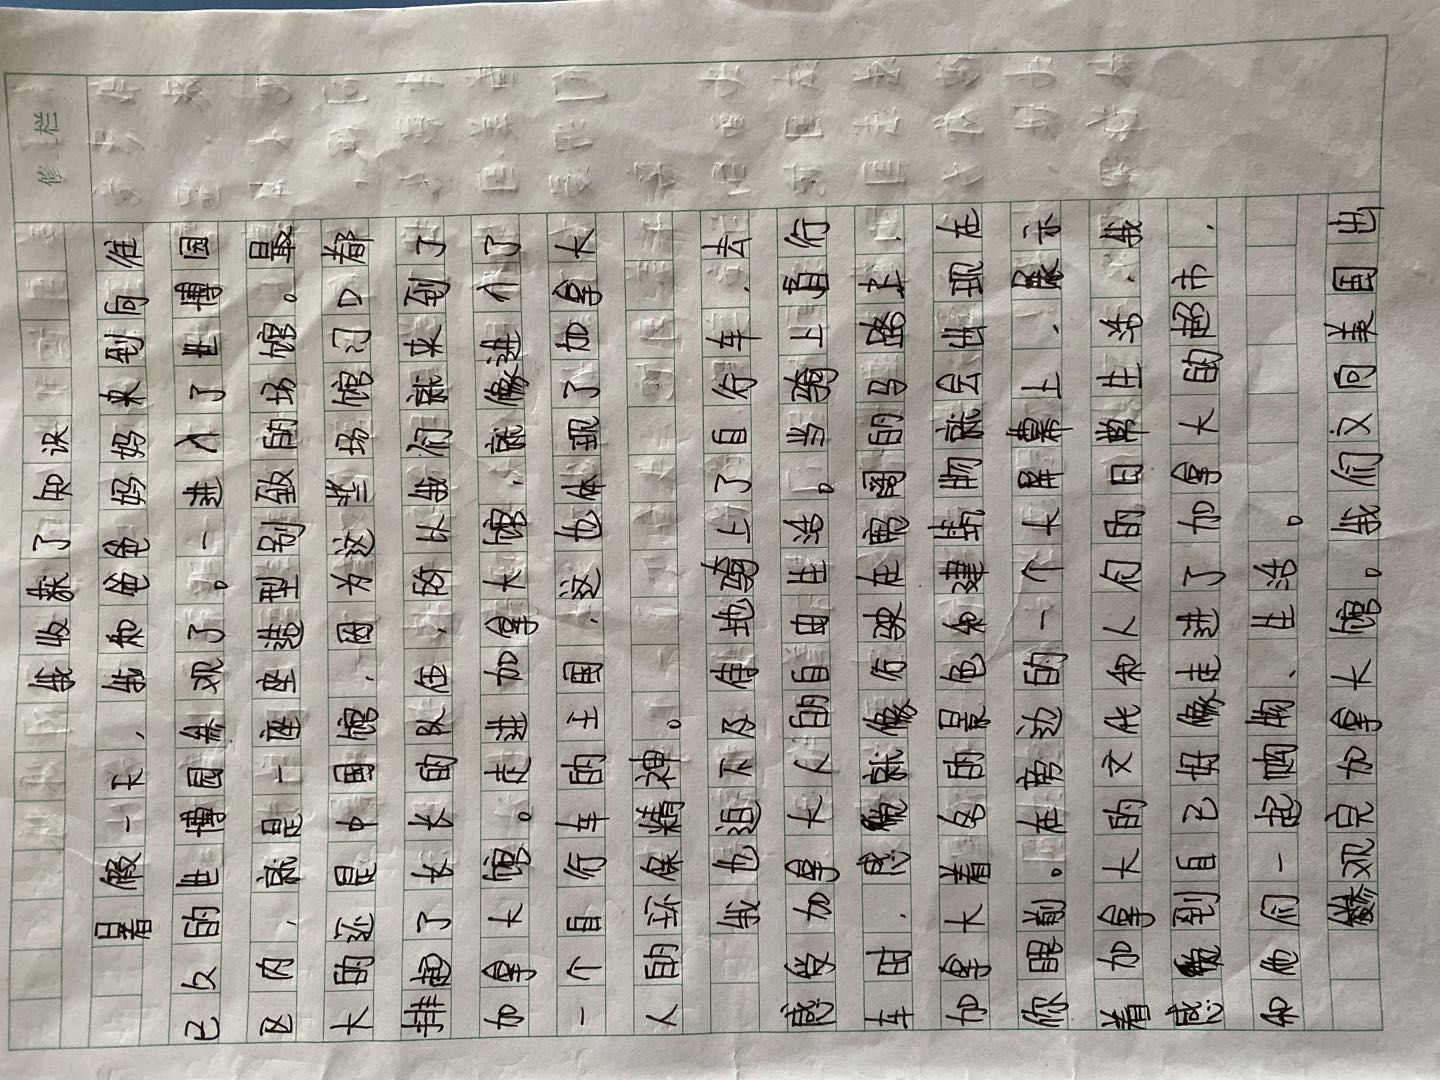 修正栏
我收获了知识
暑假一天，我和爸爸妈妈来到向往
已久的世博园参观了。一进入了世博园
区内，就是一座座造型别致的场馆。最
大的还是中国馆，因为这些场馆门口都
排起了长长的队伍，所以我们就来到了
加拿大馆。走进加拿大馆，就像进入了
一个自行车的王国，这也体现了加拿大
人的环保精神。
我也迫不及待地骑上了自行车，去
感受加拿大人的自由生活。当骑上自行
车时，感觉就像仿驶在宽阔的马路上，
加拿大着名的景色和建筑物就会出现在
你眼前。在旁边的一个大屏幕上，展示
着加拿大的文化和人们的日常生活，我
感觉到自己好像走进了加拿大的超市，
和他们一起购物、生活。
参观完加拿大馆。我们又向美国出